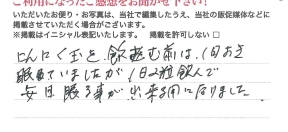 ご利用になったご感想をお聞かせ下さい!
いただいたお便り・お写真は、当社で編集したうえ、当社の販促媒体などに
掲載させていただく場合がございます。
※掲載はイニシャル表記いたします。 掲載を許可しない □
にんにく玉を飲む前は、1日おき
眠れていましたが1日2粒飲んで
毎日眠る事が出来る用になりました。